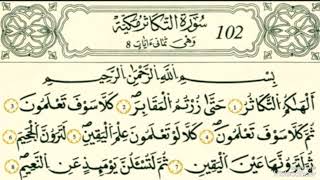 سُورَةُ التَّكَاثُرِ مَكِّيَّة 102
وَهِيَ ثَمَانِي آيَات 8
بِسْمِ اللَّهِ الرَّحْمَنِ الرَّحِيمِ
أَلْهَاكُمُ التَّكَاثُرُ ١ حَتَّىٰ زُرْتُمُ الْمَقَابِرَ ٢ كَلَّا سَوْفَ تَعْلَمُونَ ٣
ثُمَّ كَلَّا سَوْفَ تَعْلَمُونَ ٤ كَلَّا لَوْ تَعْلَمُونَ عِلْمَ الْيَقِينِ ٥ لَتَرَوُنَّ الْجَحِيمَ ٦
ثُمَّ لَتَرَوُنَّهَا عَيْنَ الْيَقِينِ ٧ ثُمَّ لَتُسْأَلُنَّ يَوْمَئِذٍ عَنِ النَّعِيمِ ٨